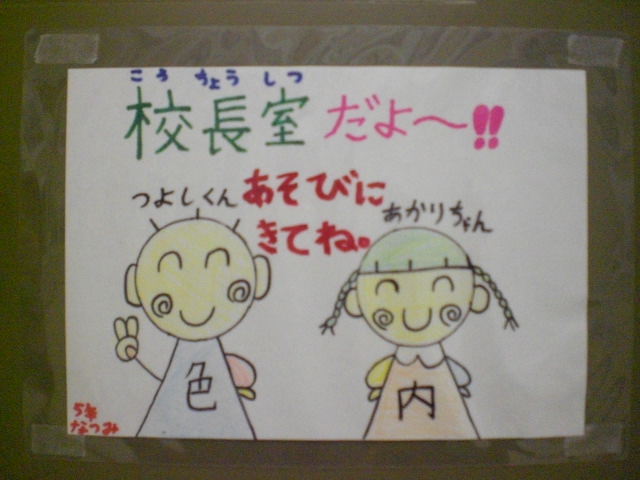 こうちょうしつ
校長室だよ～!!
つよしくん
あそびに
きてね。
あかりちゃん
色
内
5年
なつみ